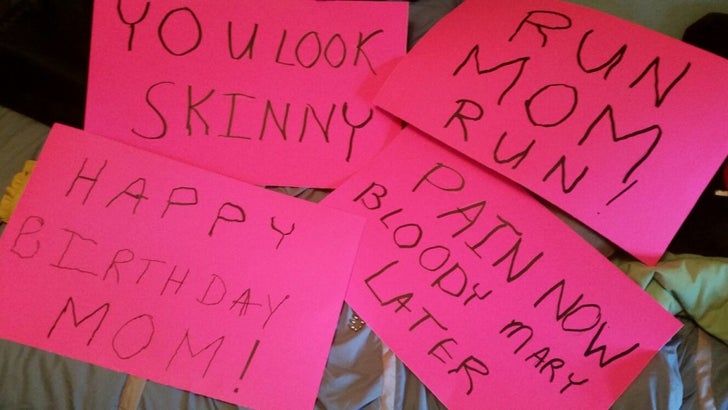 YOU LOOK
SKINNY
RUN
MOM
RUN!
HAPPY
BIRTHDAY
MOM!
PAIN NOW
BLOODY MARY
LATER